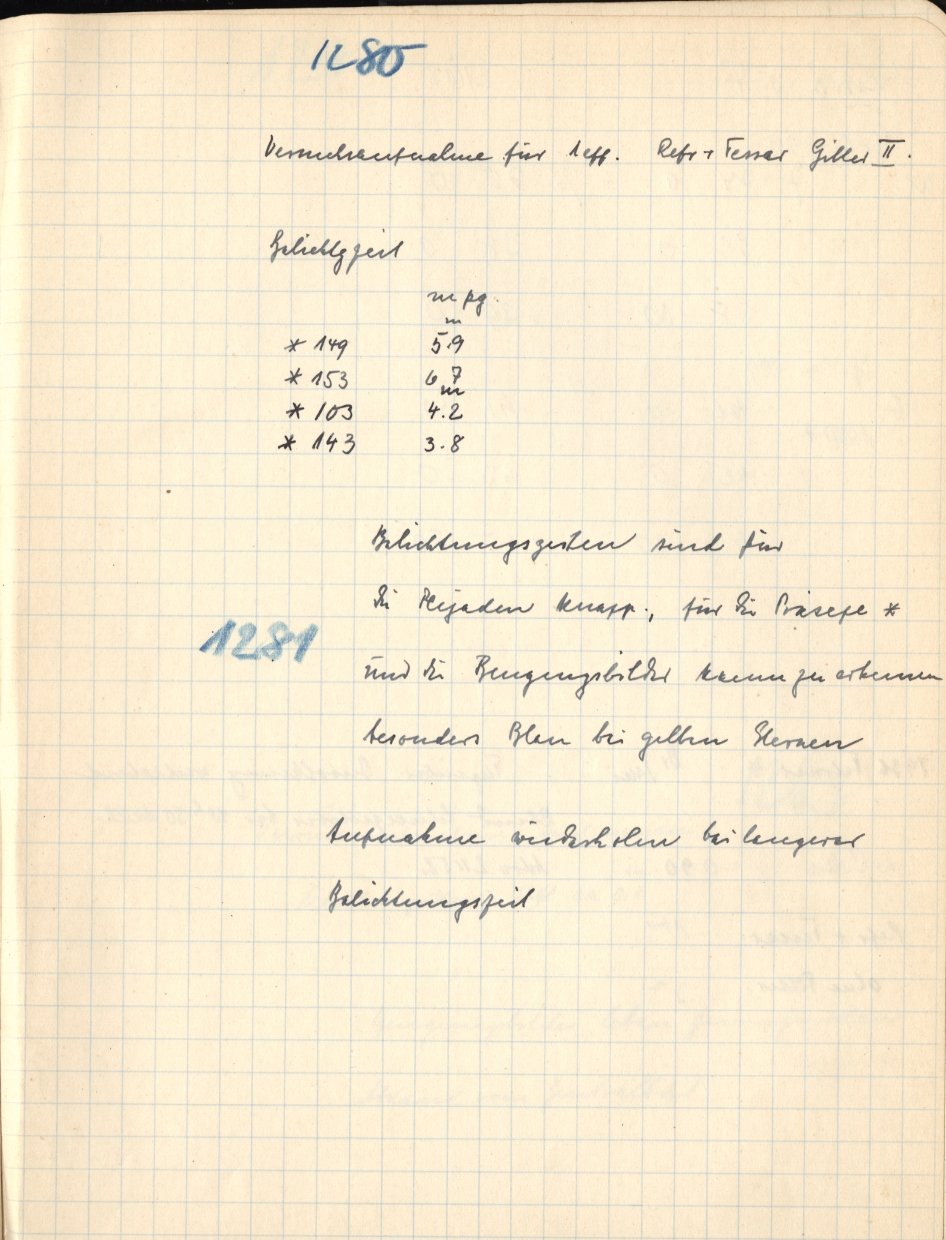 1280
Versuchsaufnahme für λeff. Refr + Tessar Gitter II.
Belichtgzeit
m pg.
m
* 149 5.9
* 153 6.7
m
* 103 4.2
* 143 3.8
Belichtungszeiten sind für
die Plejaden knapp., für die Präsepe *
1281
und die Beugungsbilder kaum zu erkennen
besonders Blau bei gelben Sternen
Aufnahme wiederholen bei langerer
Belichtungszeit